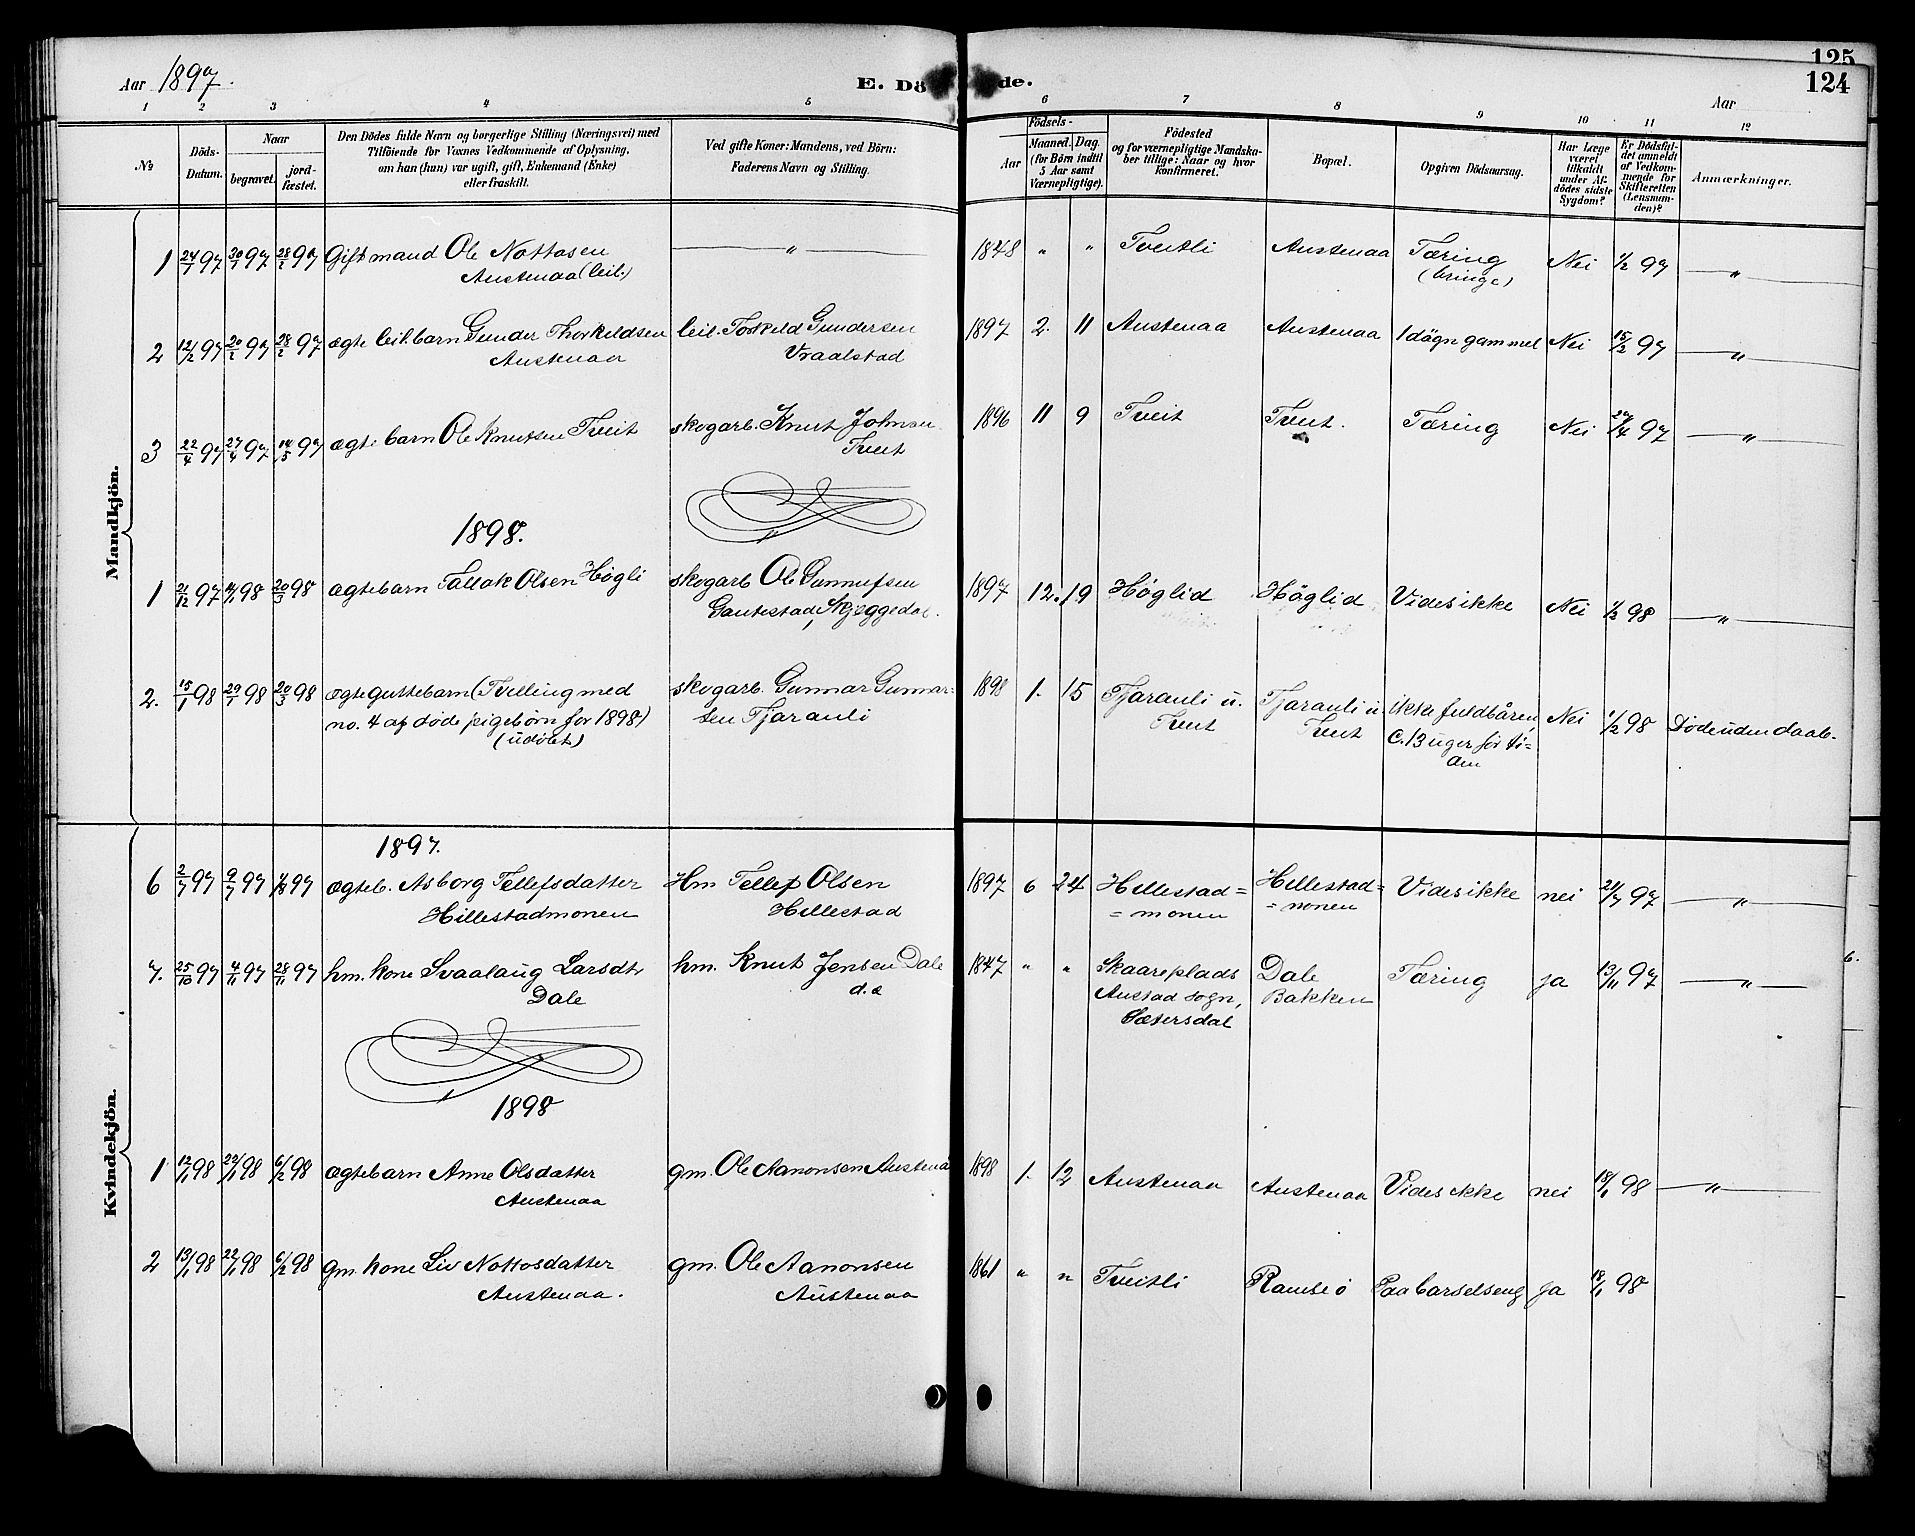 Aar 1897.
E. Dö
de.
125
124
Aar
1 2 3 4 5 6 7 8 9 10 11 12
№
Döds-
Datum.
Naar
begravet.
jord-
fæstet.
Den Dödes fulde Navn og borgerlige Stilling (Næringsvei) med
Tilföiende for Voxnes Vedkommende af Oplysning,
om han (hun) var ugift, gift, Enkemand (Enke)
eller fraskilt.
Ved gifte Koner: Mandens, ved Börn:
Faderens Navn og Stilling.
Födsels-
Aar
Maaned. Dag
(for Börn indtil
5 Aar samt
Værnepligtige).
Födested
og for værnepligtige Mandska-
ber tillige: Naar og hvor
konfirmeret.
Bopæl.
Opgiven Dödsaarsag.
Har Læge
været
tilkaldt
under Af-
dödes sidste
Sygdom?
Er Dödsfal-
det anmeldt
af Vedkom-
mende for
Skifteretten
(Lensman-
den)?
Anmærkninger.
Mandkjön.
1 24/1 97 30/1 97 28/2 97 Gift mand Ole Nottosen — „ — 1848 „ „ Tveitli Austenaa Tæring Nei 1/2 97 — „ —
Austenaa (leil.) (bringe)
2 12/2 97 20/2 97 28/2 97 ægte leil. barn Gunder Thorkeldsen leil. Torkeld Gundersen 1897 2. 11 Austenaa Austenaa 1 døgn gammel Nei 15/2 97 — „ —
Austenaa Vraalstad
3 22/4 97 27/4 97 14/5 97 ægte barn Ole Knutsen Tveit skogarb. Knut Johnsen 1896 11 9 Tveit Tveit. Tæring Nei 27/4 97 — „ —
Tveit
1898.
1 21/12 97 4/1 98 20/3 98 ægtebarn Tallak Olsen Høgli skogarb. Ole Gunnufsen 1897 12. 19 Høglid Høglid Vides ikke Nei 1/2 98 — „ —
Gautestad, Skjeggedal.
2. 15/1 98 29/1 98 20/3 98 ægte guttebarn (Tvilling med skogarb. Gunnar Gunnar- 1898 1. 15 Tjarauli u. Tjarauli u. ikke fuldbåren, Nei 1/2 98 Døde uden daab.
no. 4 af døde pigebørn for 1898) sen Tjarauli Tveit Tveit C. 13 uger før ti=
(udøbt) den
Kvindekjön.
1897.
6 2/7 97 9/7 97 1/8 97 ægteb. Asborg Tellefsdatter Hm Tellef Olsen 1897 6 24 Hillestad= Hillestad= Vides ikke nei 21/7 97 — „ —
Hillestadmonen Hillestad = monen = monen
7. 25/10 97 4/11 97 28/11 97 hm. kone Svaalaug Larsdtr hm. Knut Jensen Dale 1847 „ „ Skaareplads Dale Tæring ja 13/11 97 — „ —
Dale d.a Austad sogn, Bakken
Sætersdal
1898
1 12/1 98 22/1 98 6/2 98 ægtebarn Anne Olsdatter gm. Ole Aanonsen Austenå 1898 1. 12 Austenaa Austenaa Vides ikke nei 18/1 98 — „ —
Austenaa
2 13/1 98 22/1 98 6/2 98 gm. kone Liv Nottosdatter gm. Ole Aanonsen 1861 „ „ Tveitli Ramseö Paa barselseng ja 18/1 98
Austenaa. Austenaa
6.